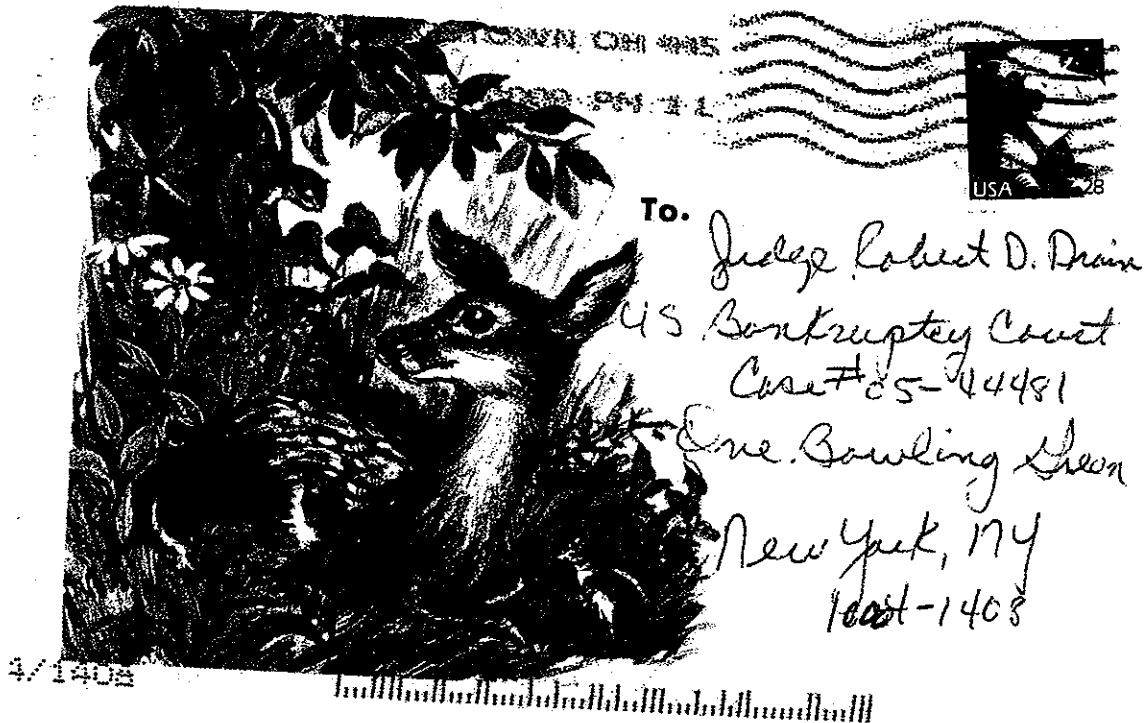 TOWN OH 445
PM 1 L
USA 28
To.
Judge Robert D. Drain
US Bankruptcy Court
Case # 05-44481
One Bowling Green
New York, NY
10004-1408
4/1408